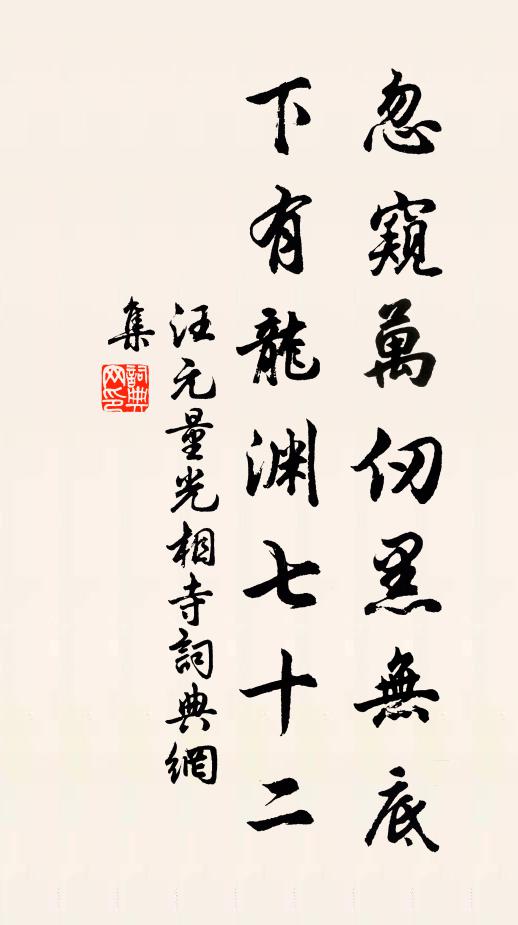 忽窺萬仞黑無底
下有龍淵七十二
汪元量光相寺詞典網
集
詞典
网印